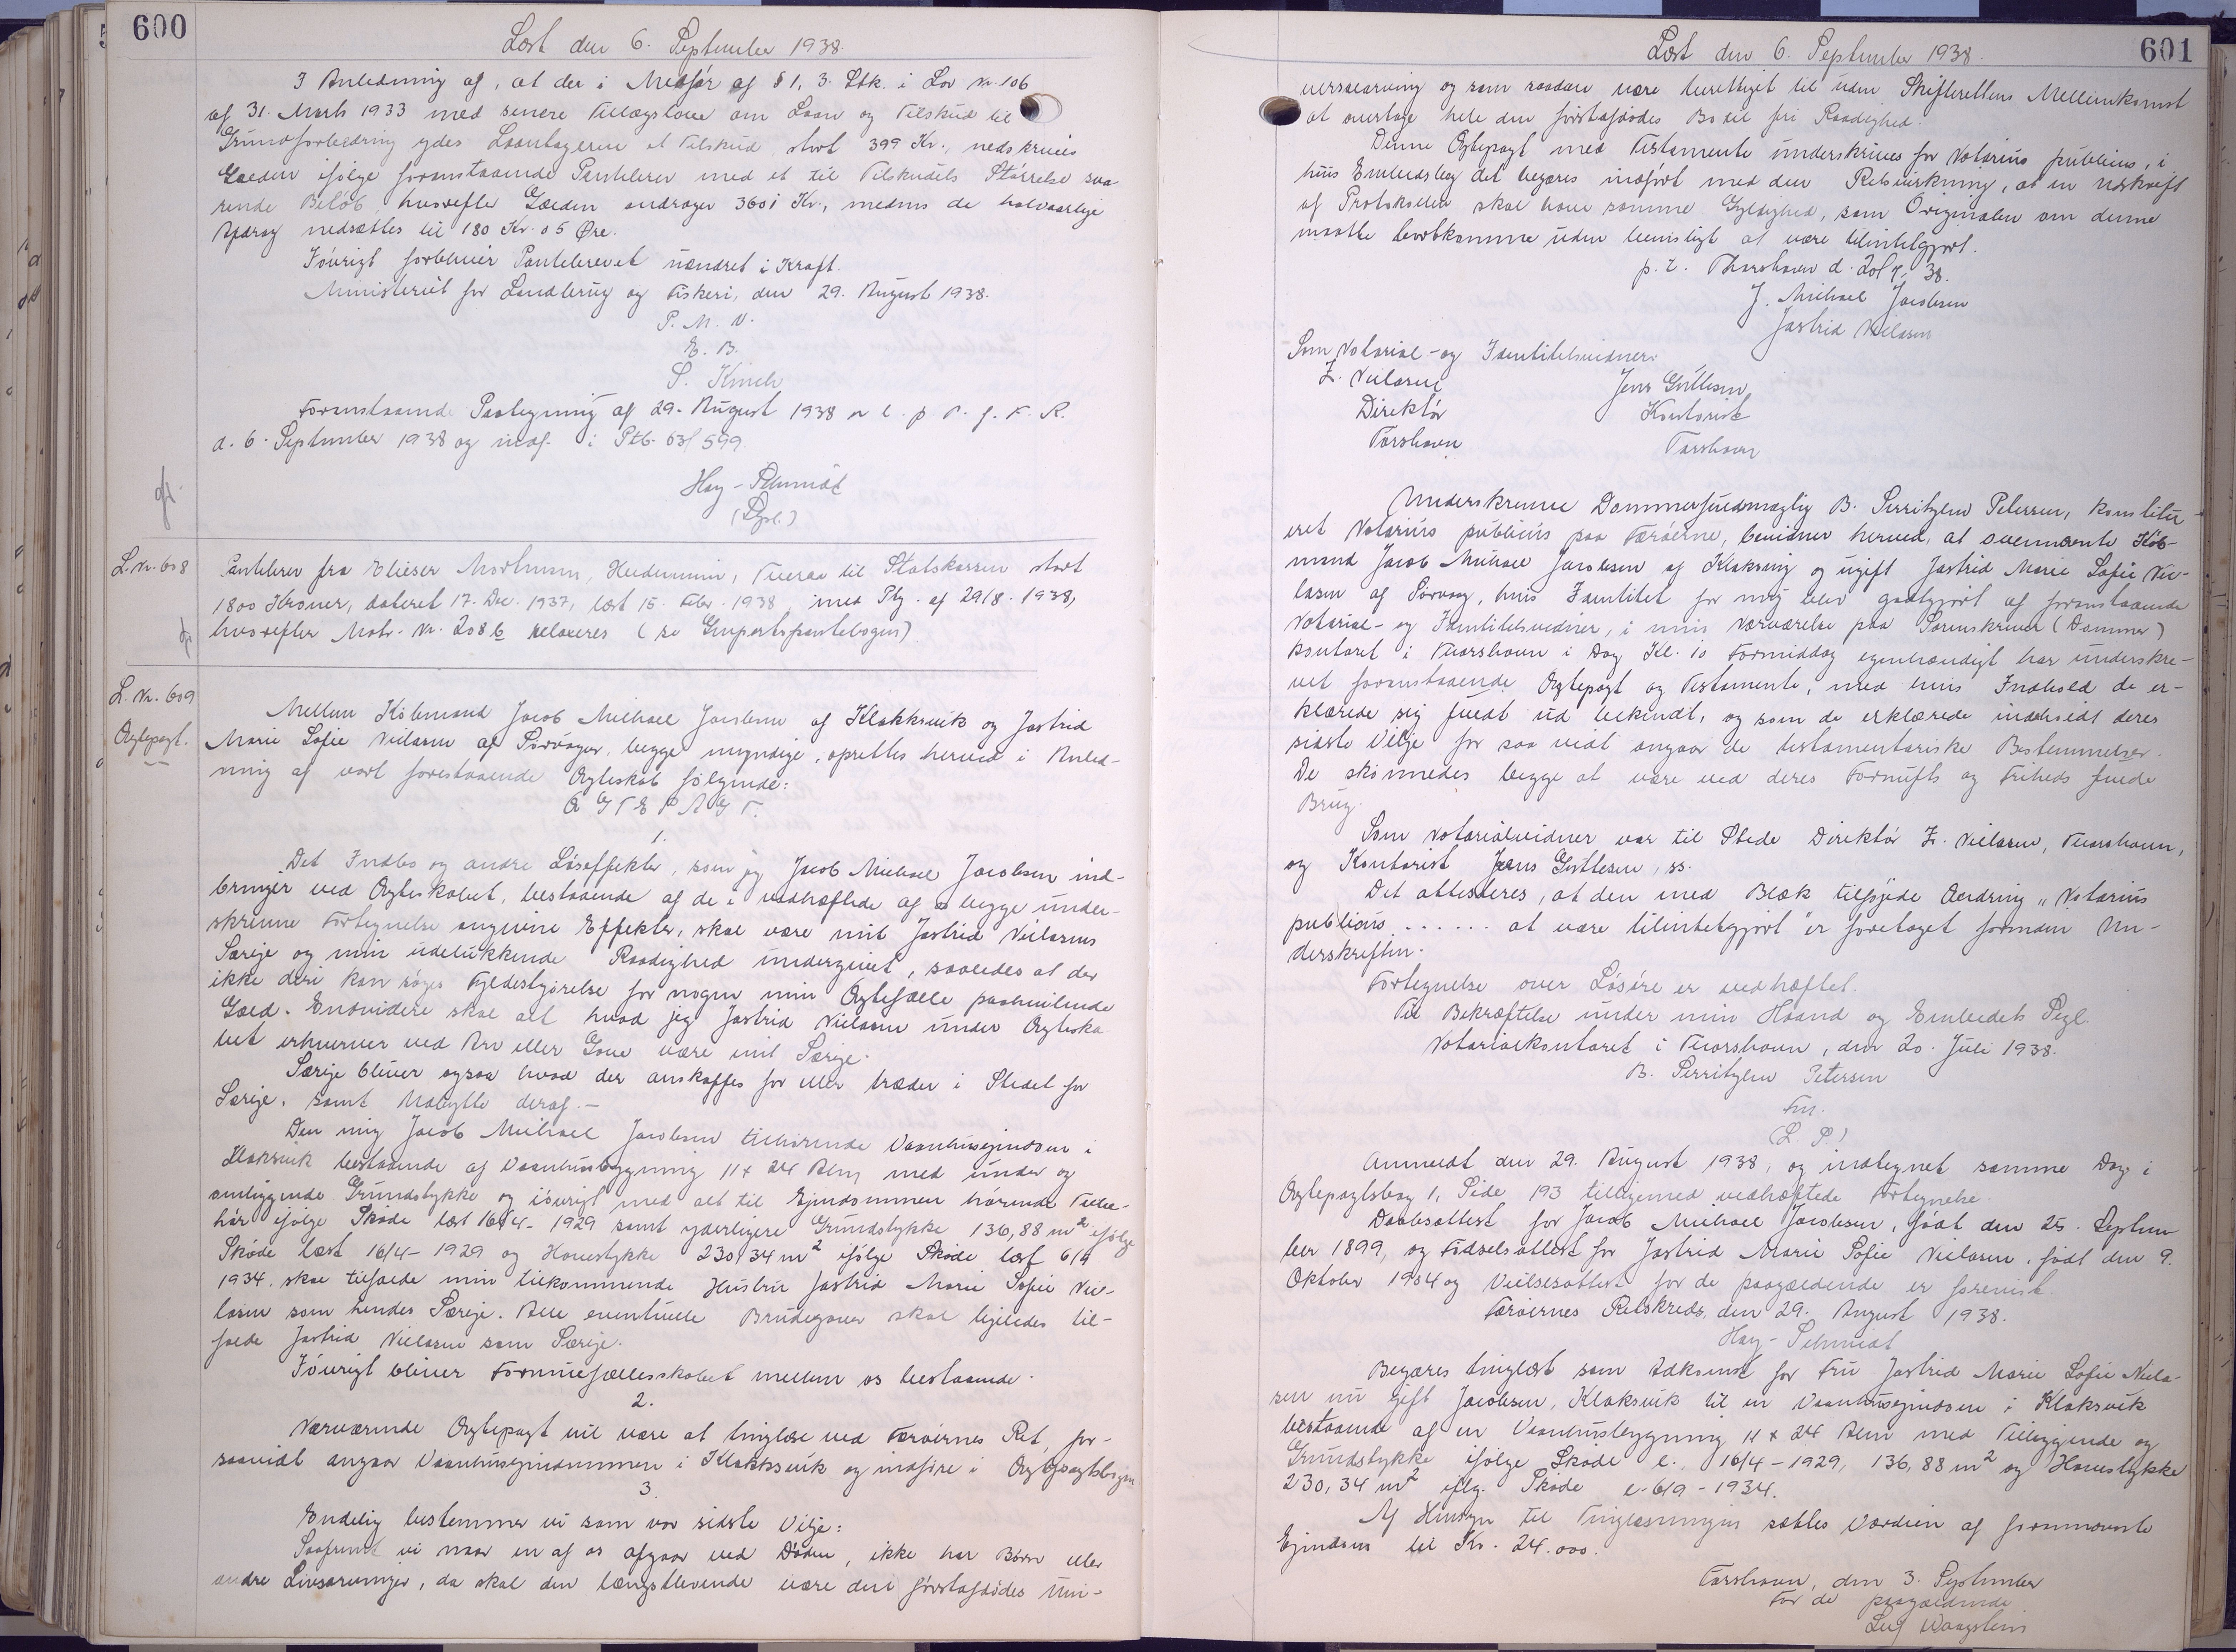 600
Læst den 6. September 1938.
I Anledning af, at der i Medfør af § 1, 3. Stk. i Lov Nr. 106
af 31. Marts 1933 med senere Tillægslove om Laan og Tilskud til
Grundforbedring ydes Laantageren et Tilskud, stort 399 Kr., nedskrives
Gælden ifølge foranstaaende Pantebrev med et til Tilskudets Størrelse sva-
rende Beløb, hvorefter Gælden andrager 3601 Kr., medens de halvaarlige
Afdrag nedsættes til 180 Kr. 05 Øre.
Iøvrigt forbliver Pantebrevet uændret i Kraft.
Ministeriet for Landbrug og Fiskeri, den 29. August 1938.
P. M. V.
E. B.
S. Kinch
Foranstaaende Paategning af 29. August 1938 er l. p. P. f. F. R.
d. 6. September 1938 og indf. i Ptb. 63/599.
Hay-Schmidt
L. Nr. 608
Pantebrev fra Elieser Mortensen, Hudemuin, Tveraa til Statskassen stort
1800 Kroner, dateret 17. Dec. 1937, læst 15. Febr. 1938, med Ptg. af 29/8. 1938,
hvorefter Matr. Nr. 208 b relaxeres (se Genpartspantebogen)
L. Nr. 609
Ægtepagt.
Mellem Købmand Jacob Michael Jacobsen af Klakksvik og Jastrid
Marie Sofie Nielasen af Sørvaager, begge myndige, oprettes herved i Anled-
ning af vort forestaaende Ægteskab følgende:
ÆGTEPAGT.
1.
Det Indbo og andre Løseffekter, som jeg Jacob Michael Jacobsen ind-
bringer ved Ægteskabet, bestaaende af de i vedhæftede af os begge under-
skrevne Fortegnelse angivne Effekter, skal være mit Jastrid Nielasens
Særeje og min udelukkende Raadighed undergivet, saaledes at der
ikke deri kan søges Fyldestgørelse for nogen min Ægtefælle paahvilende
Gæld. Endvidere skal alt hvad jeg Jastrid Nielasen under Ægteska-
bet erhverver ved Arv eller Gave være mit Særeje.
Særeje bliver ogsaa hvad der anskaffes for eller træder i Stedet for
Særeje, samt Udbytte deraf.—
Den mig Jacob Michael Jacobsen tilhørende Vaanhusejendom i
Klaksvik bestaaende af Vaanhusbygning 11 x 24 Alen med under og
omliggende Grundstykke og iøvrigt med alt til Ejendommen hørende Tilbe-
hør ifølge Skøde læst 16/4-1929 samt yderligere Grundstykke 136,88 m² ifølge
Skøde læst 16/4-1929 og Havestykke 230,34 m² ifølge Skøde læst 6/9
1934. skal tilfalde min tilkommende Hustru Jastrid Marie Sofie Nie-
lasen som hendes Særeje. Alle eventuelle Brudegaver skal ligeledes til-
falde Jastrid Nielasen som Særeje.
Iøvrigt bliver Formuefællesskabet mellem os bestaaende.
2.
Nærværende Ægtepagt vil være at tinglæse ved Færøernes Ret, for-
saavidt angaar Vaanhusejendommen i Klakksvik og indføre i Ægtepagtsbogen
3.
Endelig bestemmer vi som vor sidste Vilje:
Saafremt vi naar en af os afgaar ved Døden, ikke har Børn eller
andre Livsarvinger, da skal den længstlevende være den førstafdødes Uni-
601
Læst den 6. September 1938.
versalarving og som saadan være berettiget til uden Skifterettens Mellemkomst
at overtage hele den førstafdødes Bo til fri Raadighed.
Denne Ægtepagt med Testamente underskrives for Notarius publicus, i
hvis Embedsbog det begæres indført med den Retsvirkning, at en Udskrift
af Protokollen skal have samme Gyldighed, som Originalen om denne
maatte bortkomme uden bevisligt at være tilintetgjort.
p. t. Thorshavn d. 20/7. 38.
J. Michael Jacobsen
Jastrid Nielasen
Som Notarial- og Identitetsvidner:
Z. Nielasen
Jens Guttesen
Direktør
Kontorist
Torshavn
Torshavn
Underskrevne Dommerfuldmægtig B. Serritzlew Petersen, konstitu-
eret Notarius publicus paa Færøerne, bevidner herved, at ovennævnte Køb-
mand Jacob Michael Jacobsen af Klaksvig og ugift Jastrid Marie Sofie Nie-
lasen af Sørvaag, hvis Identitet for mig blev godtgjort af foranstaaende
Notarial- og Identitetsvidner, i min Nærværelse paa Sorenskriver (Dommer)
kontoret i Thorshavn i Dag Kl. 10 Formiddag egenhændigt har underskre-
vet foranstaaende Ægtepagt og Testamente, med hvis Indhold de er-
klærede sig fuldt ud bekendt, og som de erklærede indeholdt deres
sidste Vilje for saa vidt angaar de testamentariske Bestemmelser.
De skønnedes begge at være ved deres Fornufts og Friheds fulde
Brug.
Som Notarialvidner var til Stede Direktør Z. Nielasen, Thorshavn,
og Kontorist Jens Guttesen, ss.
Det attesteres, at den med Blæk tilføjede Ændring „Notarius
publicus . . . . . . at være tilintetgjort" er foretaget forinden Un-
derskriften.
Fortegnelse over Løsøre er vedhæftet.
Til Bekræftelse under min Haand og Embedets Segl.
Notarialkontoret i Thorshavn, den 20. Juli 1938.
B. Serritzlew Petersen
Fm.
(L. S.)
Anmeldt den 29. August 1938, og indtegnet samme Dag i
Ægtepagtsbog 1, Side 193 tilligemed vedhæftede Fortegnelse.
Daabsattest for Jacob Michael Jacobsen, født den 25. Septem-
ber 1899, og Fødselsattest for Jastrid Marie Sofie Nielasen, født den 9.
Oktober 1904 og Vielsesattest for de paagældende er forevist.
Færøernes Retskreds, den 29. August 1938.
Hay-Schmidt
Begæres tinglæst som Adkomst for Fru Jastrid Marie Sofie Niela-
sen nu gift Jacobsen, Klaksvik til en Vaanhusejendom i Klaksvik
bestaaende af en Vaanhusbygning 11 x 24 Alen med Tilliggende og
Grundstykke ifølge Skøde l. 16/4-1929, 136,88 m² og Havestykke
230,34 m² iflg. Skøde l. 6/9-1934.
Af Hensyn til Tinglæsningen sættes Værdien af fornævnte
Ejendom til Kr. 24.000.
Torshavn, den 3. September
For de paagældende
Luf Waagstein